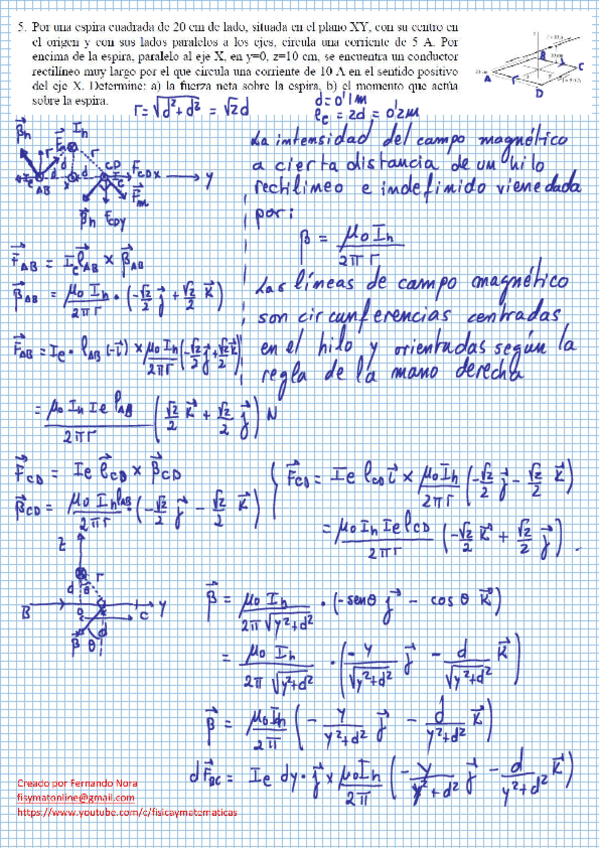 5. Por una espira cuadrada de 20 cm de lado, situada en el plano XY, con su centro en
el origen y con sus lados paralelos a los ejes, circula una corriente de 5 A. Por
encima de la espira, paralelo al eje X, en y=0, z=10 cm, se encuentra un conductor
rectilíneo muy largo por el que circula una corriente de 10 A en el sentido positivo
del eje X. Determine: a) la fuerza neta sobre la espira, b) el momento que actúa
sobre la espira.
r = √(d²+d²) = √2 d
d = 0'1 m
ℓe = 2d = 0'2 m
La intensidad del campo magnético
a cierta distancia de un hilo
rectilineo e indefinido viene dada
por:
β = μ₀ Ih / 2πr
Las líneas de campo magnético
son circunferencias centradas
en el hilo y orientadas según la
regla de la mano derecha
F⃗AB = Ie ℓ⃗AB × β⃗AB
β⃗AB = μ₀ Ih / 2πr · (-√2/2 j⃗ + √2/2 k⃗)
F⃗AB = Ie · ℓAB (-i⃗) × μ₀ Ih / 2πr (-√2/2 j⃗ + √2/2 k⃗)
= μ₀ Ih Ie ℓAB / 2πr (√2/2 k⃗ + √2/2 j⃗) N
F⃗CD = Ie ℓ⃗CD × β⃗CD
β⃗CD = μ₀ Ih ℓAB / 2πr · (-√2/2 j⃗ - √2/2 k⃗)
F⃗CD = Ie ℓCD i⃗ × μ₀ Ih / 2πr (-√2/2 j⃗ - √2/2 k⃗)
= μ₀ Ih Ie ℓCD / 2πr (-√2/2 k⃗ + √2/2 j⃗).
β⃗ = μ₀ Ih / 2π √(y²+d²) · (-senθ j⃗ - cosθ k⃗)
= μ₀ Ih / 2π √(y²+d²) · (-y / √(y²+d²) j⃗ - d / √(y²+d²) k⃗)
β⃗ = μ₀ Ih / 2π (- y / y²+d² j⃗ - d / y²+d² k⃗)
dF⃗BC = Ie dy · j⃗ × μ₀ Ih / 2π (- y / y²+d² j⃗ - d / y²+d² k⃗)
Creado por Fernando Nora
fisymatonline@gmail.com
https://www.youtube.com/c/fisicaymatematicas